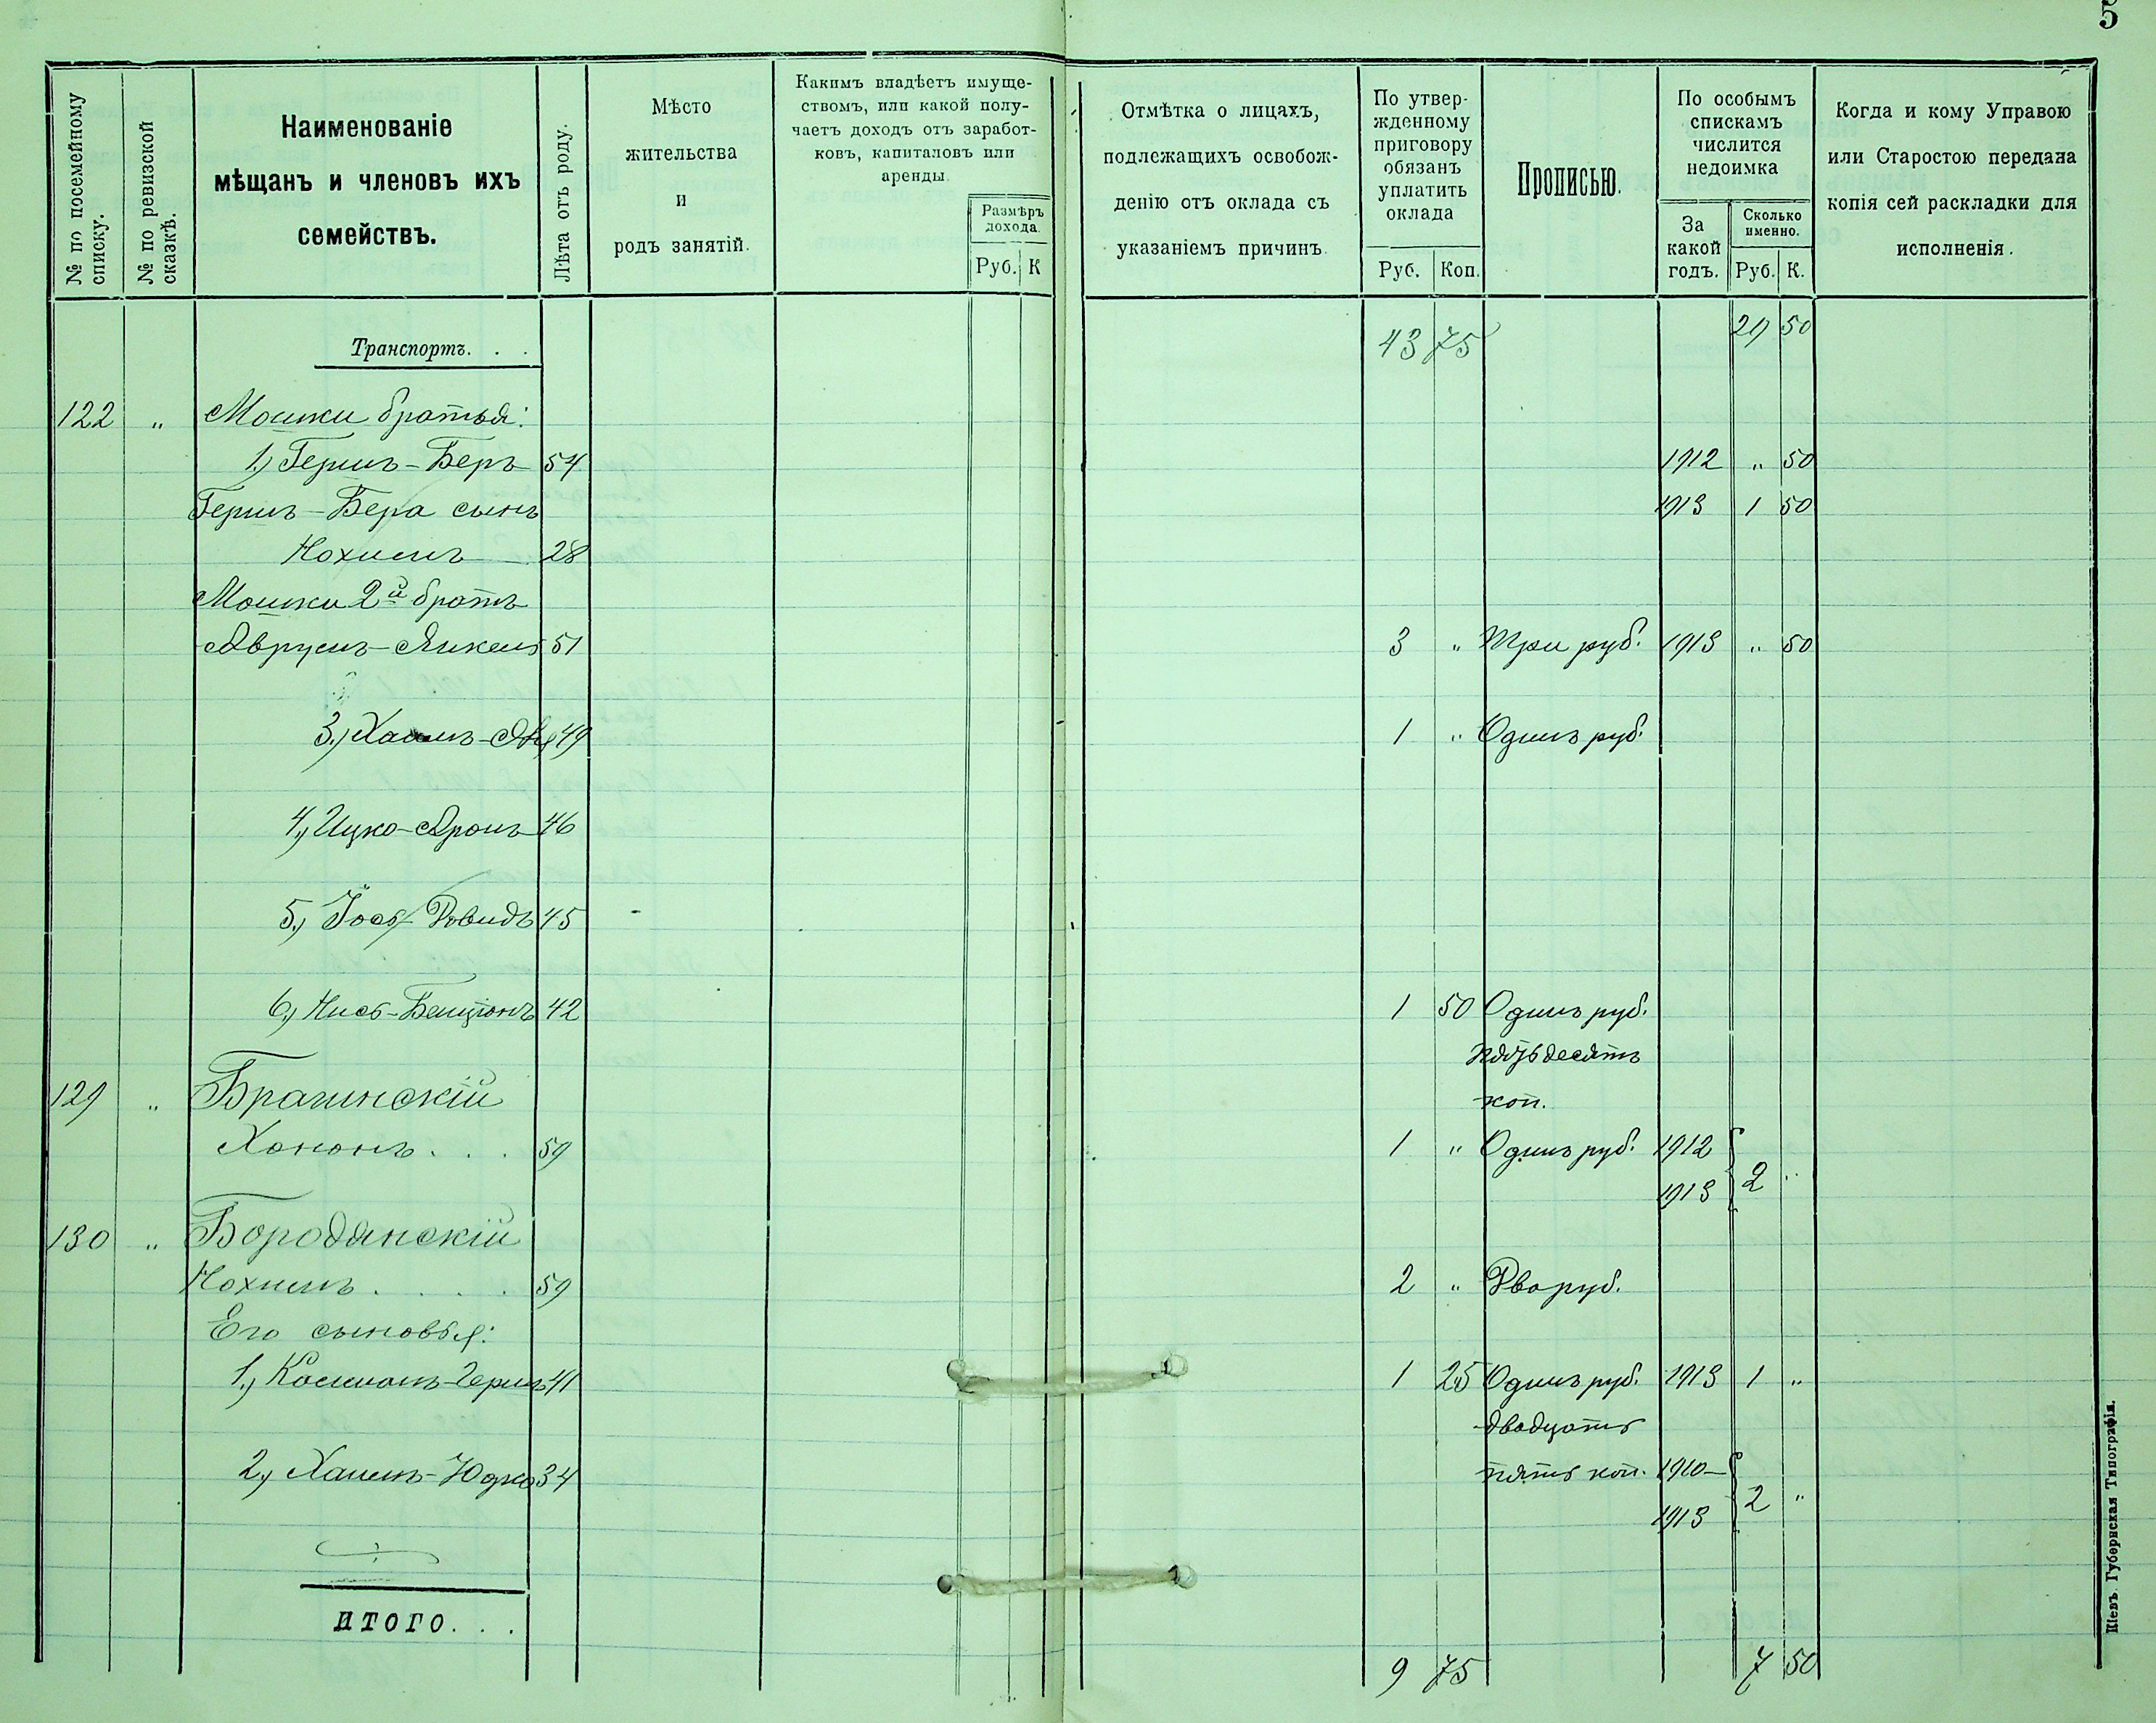 5
№ по посемейному списку.
№ по ревизской сказкѣ.
Наименованіе
мѣщанъ и членовъ ихъ
семействъ.
Лѣта отъ роду.
Мѣсто
жительства
и
родъ занятій.
Какимъ владѣетъ имуще-
ствомъ, или какой полу-
чаетъ доходъ отъ заработ-
ковъ, капиталовъ или
аренды.
Размѣръ
дохода.
Руб. К
Отмѣтка о лицахъ,
подлежащихъ освобож-
денію отъ оклада съ
указаніемъ причинъ.
По утвер-
жденному
приговору
обязанъ
уплатить
оклада
Руб. Коп.
Прописью.
По особымъ
спискамъ
числится
недоимка
За
какой
годъ.
Сколько
именно.
Руб. К.
Когда и кому Управою
или Старостою передана
копія сей раскладки для
исполненія.
Транспортъ. . . 43 75 29 50
122 " Мошки братья:
1.) Гершъ-Беръ 54 1912 " 50
Гершъ-Бера сынъ 1913 1 50
Нохимъ 28
Мошки 2й братъ
Аврумъ-Янкель 51 3 " Три руб. 1913 " 50
3.) Хаимъ- 49 1 " Одинъ руб.
4.) Ицко-Аронъ 46
5.) Іось-Давидъ 45
6.) Нись-Бенціонъ 42 1 50 Одинъ руб.
пятьдесятъ
129 " Брагинскій коп.
Хононъ . . . 59 1 " Одинъ руб. 1912
1913 2 "
130 " Бородянскій
Нохимъ . . . . 59 2 " Два руб.
Его сыновья:
1.) Кальманъ-Гершъ 41 1 25 Одинъ руб. 1913 1 "
двадцать
2.) Хаимъ-Юдко 34 пять коп. 1910-
1913 2 "
ИТОГО. . .
9 75 7 50
Кіевъ. Губернская Типографія.